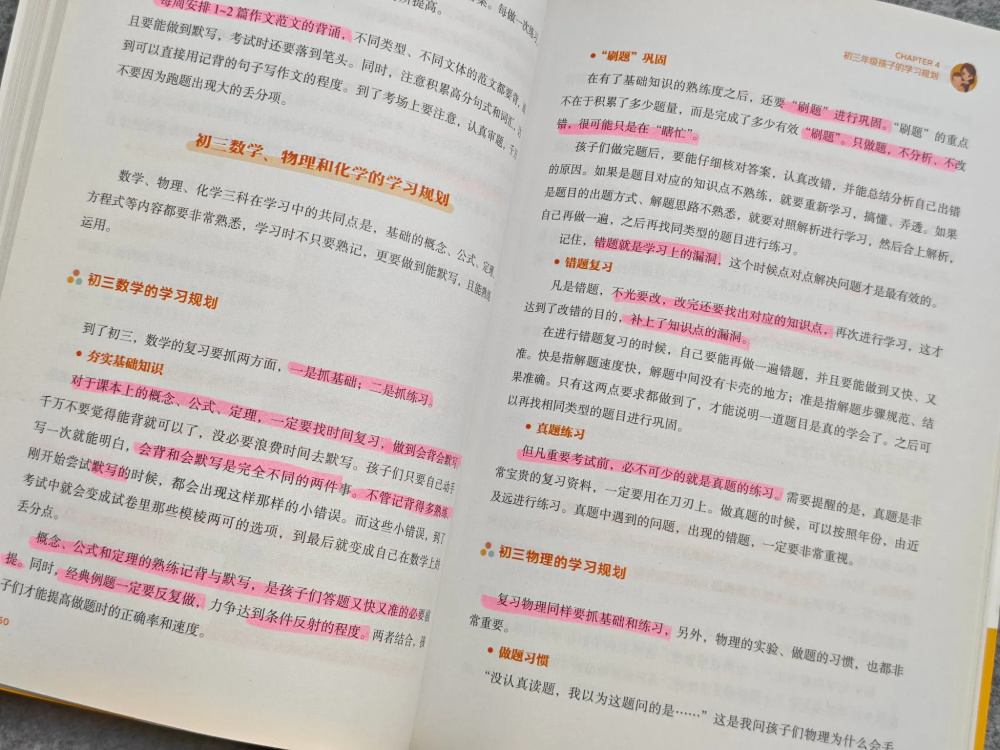 每周安排1~2篇作文范文的背诵，不同类型、不同文体的范文都要背，
且要能做到默写，考试时还要落到笔头。同时，注意积累高分句式和词汇，
到可以直接用记背的句子写作文的程度。到了考场上要注意，认真审题，千万
不要因为跑题出现大的丢分项。
初三数学、物理和化学的学习规划
数学、物理、化学三科在学习中的共同点是，基础的概念、公式、定理、
方程式等内容都要非常熟悉，学习时不只要熟记，更要做到能默写，且能熟练
运用。
初三数学的学习规划
到了初三，数学的复习要抓两方面，一是抓基础；二是抓练习。
• 夯实基础知识
对于课本上的概念、公式、定理，一定要找时间复习，做到会背会默写
千万不要觉得能背就可以了，没必要浪费时间去默写。孩子们只要自己动手
写一次就能明白，会背和会默写是完全不同的两件事。不管记背得多熟练
刚开始尝试默写的时候，都会出现这样那样的小错误。而这些小错误，到了
考试中就会变成试卷里那些模棱两可的选项，到最后就变成自己在数学上的
丢分点。
概念、公式和定理的熟练记背与默写，是孩子们答题又快又准的必要前
提。同时，经典例题一定要反复做，力争达到条件反射的程度。两者结合，孩
子们才能提高做题时的正确率和速度。
CHAPTER 4
初三年级孩子的学习规划
• “刷题”巩固
在有了基础知识的熟练度之后，还要“刷题”进行巩固。“刷题”的重点
不在于积累了多少题量，而是完成了多少有效“刷题”。只做题，不分析、不改
错，很可能只是在“瞎忙”。
孩子们做完题后，要能仔细核对答案，认真改错，并能总结分析自己出错
的原因。如果是题目对应的知识点不熟练，就要重新学习，搞懂、弄透。如果
是题目的出题方式、解题思路不熟悉，就要对照解析进行学习，然后合上解析，
自己再做一遍，之后再找同类型的题目进行练习。
记住，错题就是学习上的漏洞，这个时候点对点解决问题才是最有效的。
• 错题复习
凡是错题，不光要改，改完还要找出对应的知识点，再次进行学习，这才
达到了改错的目的，补上了知识点的漏洞。
在进行错题复习的时候，自己要能再做一遍错题，并且要能做到又快、又
准。快是指解题速度快，解题中间没有卡壳的地方；准是指解题步骤规范、结
果准确。只有这两点要求都做到了，才能说明一道题目是真的学会了。之后可
以再找相同类型的题目进行巩固。
• 真题练习
但凡重要考试前，必不可少的就是真题的练习。需要提醒的是，真题是非
常宝贵的复习资料，一定要用在刀刃上。做真题的时候，可以按照年份，由近
及远进行练习。真题中遇到的问题，出现的错题，一定要非常重视。
初三物理的学习规划
复习物理同样要抓基础和练习，另外，物理的实验、做题的习惯，也都非
常重要。
• 做题习惯
“没认真读题，我以为这题问的是……”这是我问孩子们物理为什么会丢